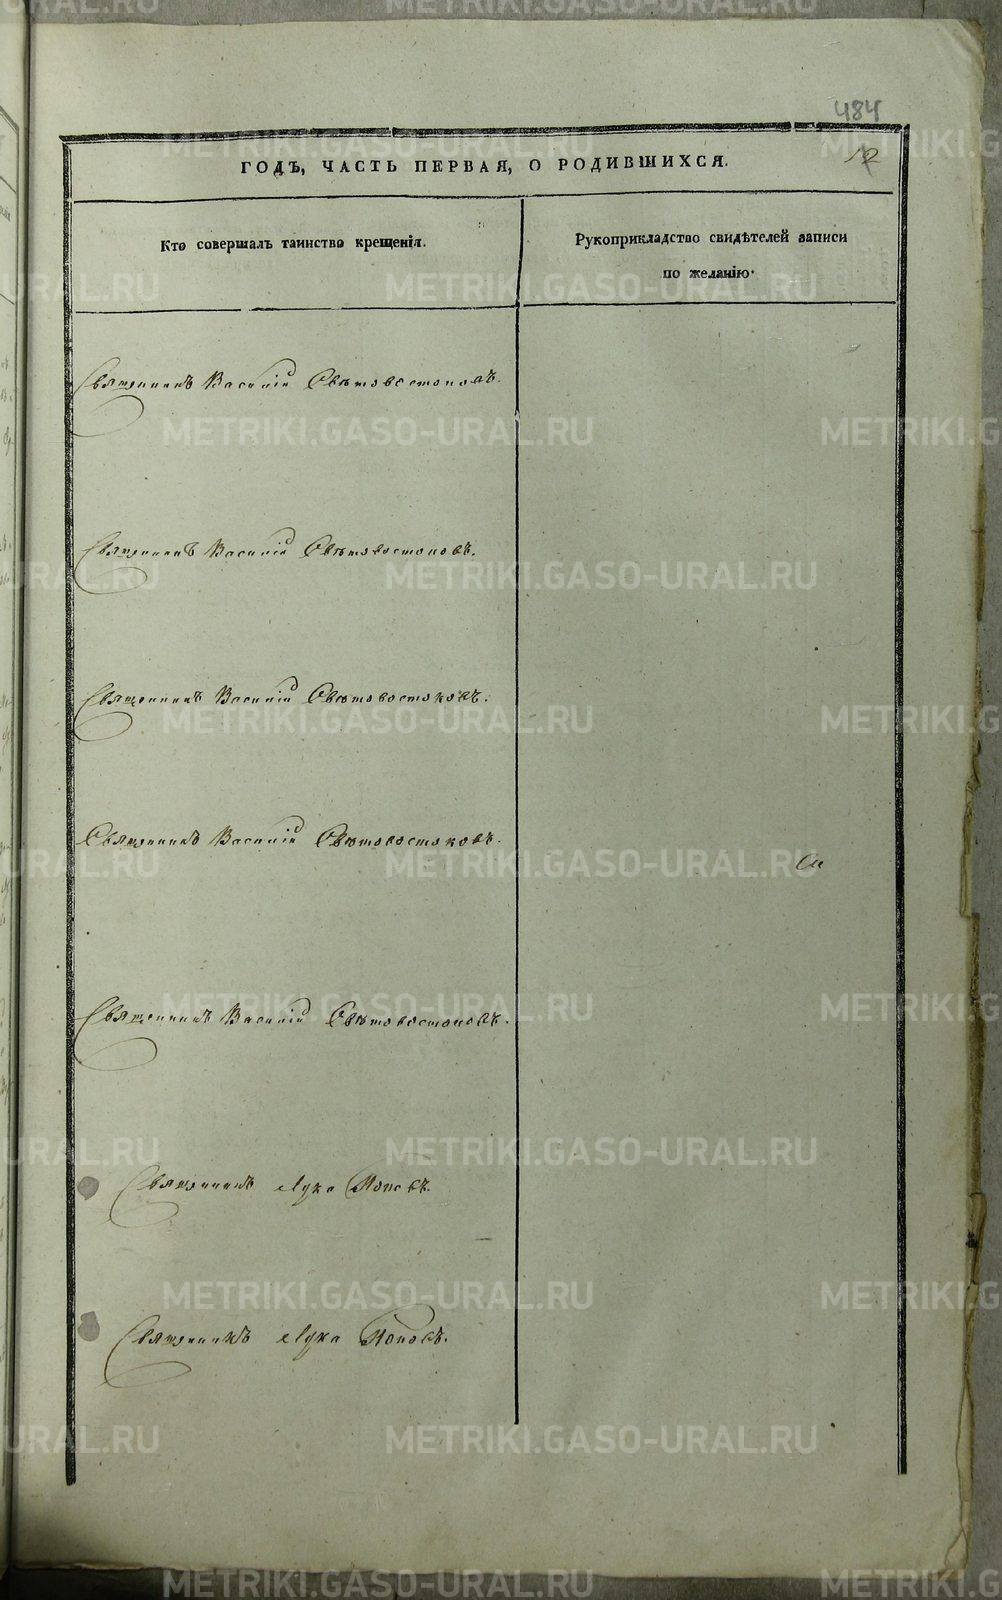 484
12
ГОДЪ, ЧАСТЬ ПЕРВАЯ, О РОДИВШИХСЯ.
Кто совершалъ таинство крещенія.
Рукоприкладство свидѣтелей записи
по желанію.
Священникъ Василій Свѣтовостоковъ.
Священникъ Василій Свѣтовостоковъ.
Священникъ Василій Свѣтовостоковъ.
Священникъ Василій Свѣтовостоковъ.
Священникъ Василій Свѣтовостоковъ.
Священникъ Лука Поповъ.
Священникъ Лука Поповъ.
METRIKI.GASO-URAL.RU